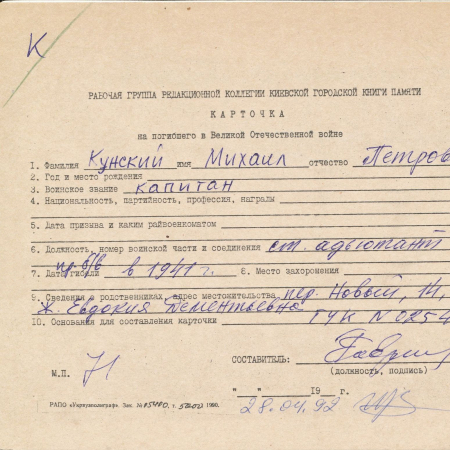 К
РАБОЧАЯ ГРУППА РЕДАКЦИОННОЙ КОЛЛЕГИИ КИЕВСКОЙ ГОРОДСКОЙ КНИГИ ПАМЯТИ
КАРТОЧКА
на погибшего в Великой Отечественной войне
1. Фамилия Кунский имя Михаил отчество Петров
2. Год и место рождения
3. Воинское звание капитан
4. Национальность, партийность, профессия, награды
5. Дата призыва и каким райвоенкоматом
6. Должность, номер воинской части и соединения ст. адъютант
7. Дата гибели пр. б/в в 1941 г. 8. Место захоронения
9. Сведения о родственниках, адрес местожительства пер. Новый, 14,
ж. Евдокия Дементьевна
10. Основания для составления карточки ГУК N 0254
СОСТАВИТЕЛЬ:
(должность, подпись)
М.П. 71
"__"______ 19__ г.
РАПО «Укрвузполиграф» Зак. № 05480, т. 50200 1990.
28.04.92